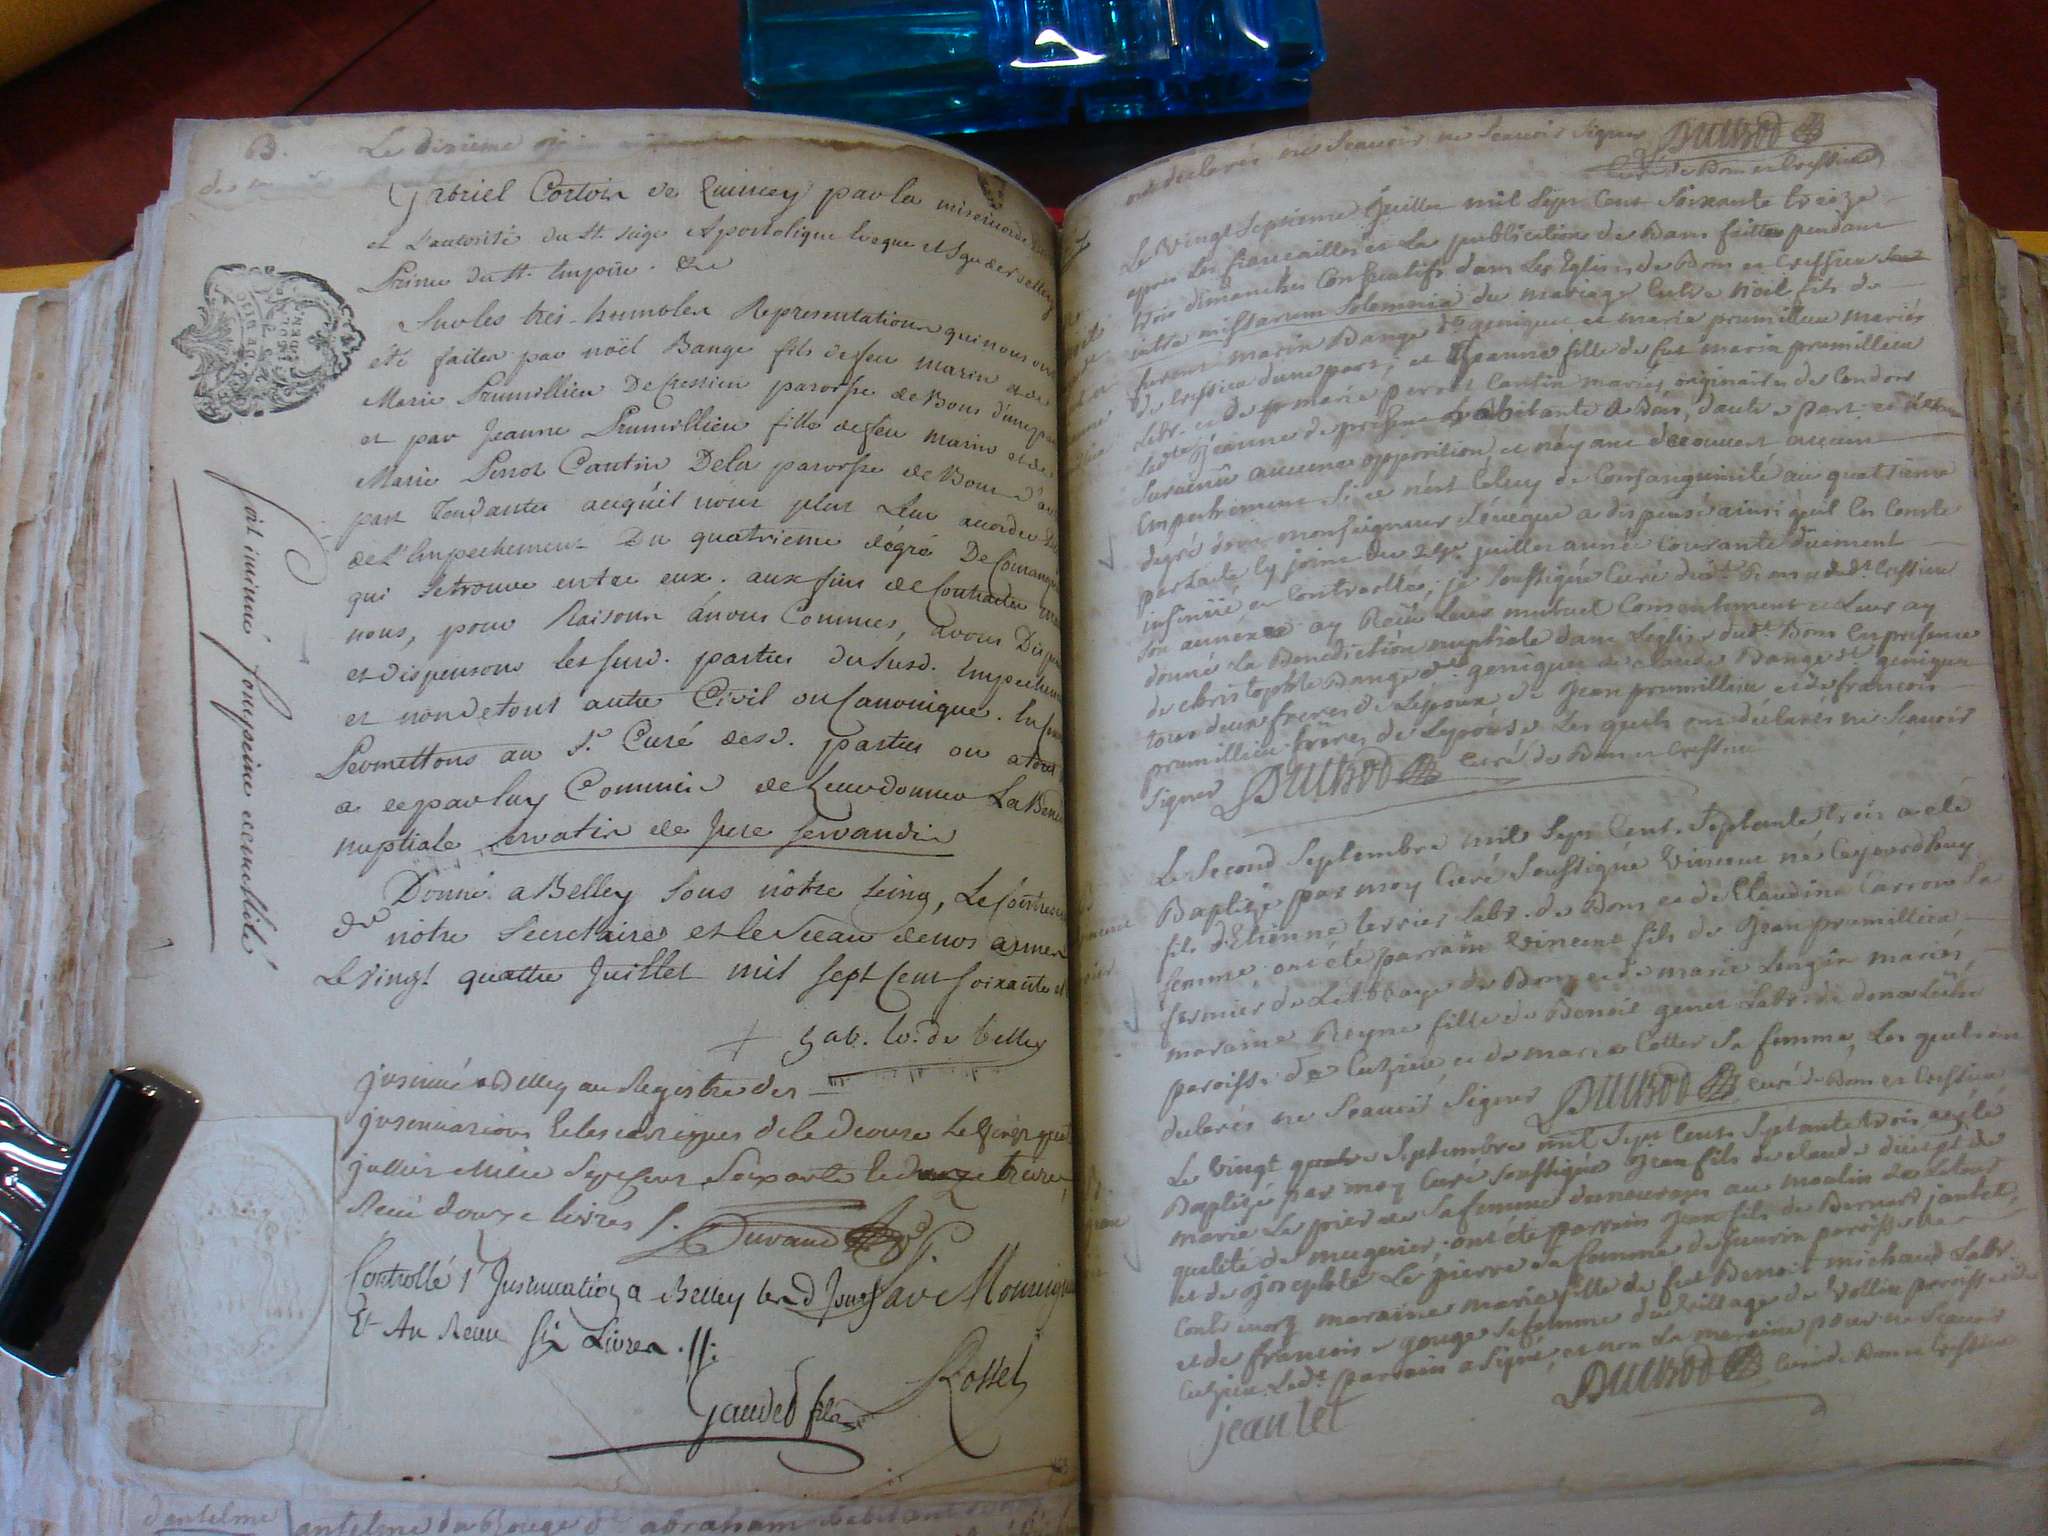 B. Le dixieme
Gabriel Cortois de Quincey par la misericorde
et l'autorité du St. siege Apostolique Eveque et Sgr de Belley
Prince du St. Empire. &c
Sur les très-humbles Representations qui nous ont
été faites par noël Bange fils de feu marin et de
Marie Prumillieu De Cressieu paroisse de Bons d'une part
et par Jeanne Prumillieu fille de feu marin et de
Marie Perrot Cantin De la paroisse de Bons d'au
part Tendantes acequ'il nous plut Leur accorder
de l'Empechement Du quatrieme dégré De Consangui
qui se trouve entre eux. aux fins de Contracter
nous, pour Raisons à nous Connues, avons Dispen
et dispensons les susd. parties du susd. Empechem
et non de tout autre Civil ou Canonique.
Permettons au Sr. Curé desd. parties ou a tout
a ce par luy Commis de Leur donner La Bene
nuptiale servatis de Jure servandis
Donné a Belley sous nôtre seing, Le Contre
de nôtre Secretaire et le Sceau de nos armes
Le vingt quattre Juillet mil sept cent soixante et
+ gab. Ev. de Belley
soit insinué sous peine de nullité
jnsinué a Belley au Registre des
jnsinuations Eclesiastiques de le Diocese Le
juillet mille sept cent soixante et treize
Reçu douze livres
Durand
Controllé l'Jnsinuation a Belley led Jour Par Monseigneur
Et Au Reçu six Livres.
Rosset
Gaudet fils
ont declarés ne Scavoir ne Scavoir signer Dubrod
Curé de Bons et Cressieu
Le Vingt Septieme Juillet mil Sept Cent Soixante treize
apres les fiancailles et La publication de Bans faittes pendant
trois dimanches Consecutifs dans Les Eglises de Bons et Cressieu
intra missarum Solemnia du mariage Entre Noël fils de
furent marin Bange dt genique et marie prumillieu mariés
de Cressieu d'une part; et Jeanne fille de fut marin prumillieu
Labr. et de marie perrot Cantin mariés originaires de Condon
Ladte Jeanne de present habitante a Bons, d'autre part
survenû aucune opposition, et n'ayant decouvert aucun
Empechement si ce n'est Celuy de Consanguinité au quatrieme
degré dont monseigneur L'éveque a dispensé ainsi qu'il En Conste
par l'acte Cy joint du 24e. juillet année Courante düement
insinüé et Controollé; je Soussigné Curé dudt Bons et dudt Cressieu
son annexe ay Reçû Leur mutuel Consentement et Leur ay
donné La Benediction nuptiale dans L'eglise dudt. Bons En presence
de christophle Bange dt. genique et claude Bange dt. genique
tous deux freres de L'epoux, de Jean prumillieu et de francois
prumillieu freres de L'epouse Les quels ont déclarés ne Scavoir
signer Dubrod Curé de Bons et Cressieu
Le Second Septembre mil Sept Cent Septante trois a eté
Baptizé par moy Curé Soussigné Vincent né Cejourdhuy
fils d'Etienne terrier Labr. de Bons et de Claudine Carron Sa
femme; ont été parrain Vincent fils de Jean prumillieu
fermier de L'abbaye de Bons et de marie Lingin mariés,
maraine Reyne fille de Benoit genet Labr. de
paroisse de Cuzieu et de marie Cottet Sa femme, Les quels ont
declarés ne Scavoir signer Dubrod Curé de Bons et Cressieu
Le Vingt quatre Septembre mil Sept Cent Septante trois a eté
Baptizé par moy Curé soussigné Jean fils de claude
marie La pierre Sa femme demeurants au moulin de
qualité de meugnier; ont été parrain Jean fils de Bernard jantet,
et de josephte La pierre sa femme de paroisse de
Contrevoz maraine marie fille de fut Benoit michaud Labr.
et de francoise gouge Sa femme du village de Vollin paroisse de
Cuzieu. Ledt. parrain a signé, et non La maraine pour ne Scavoir
Dubrod Curé de Bons et Cressieu
jeantet
d'antelme
antelme du Rouge dt abraham habitant